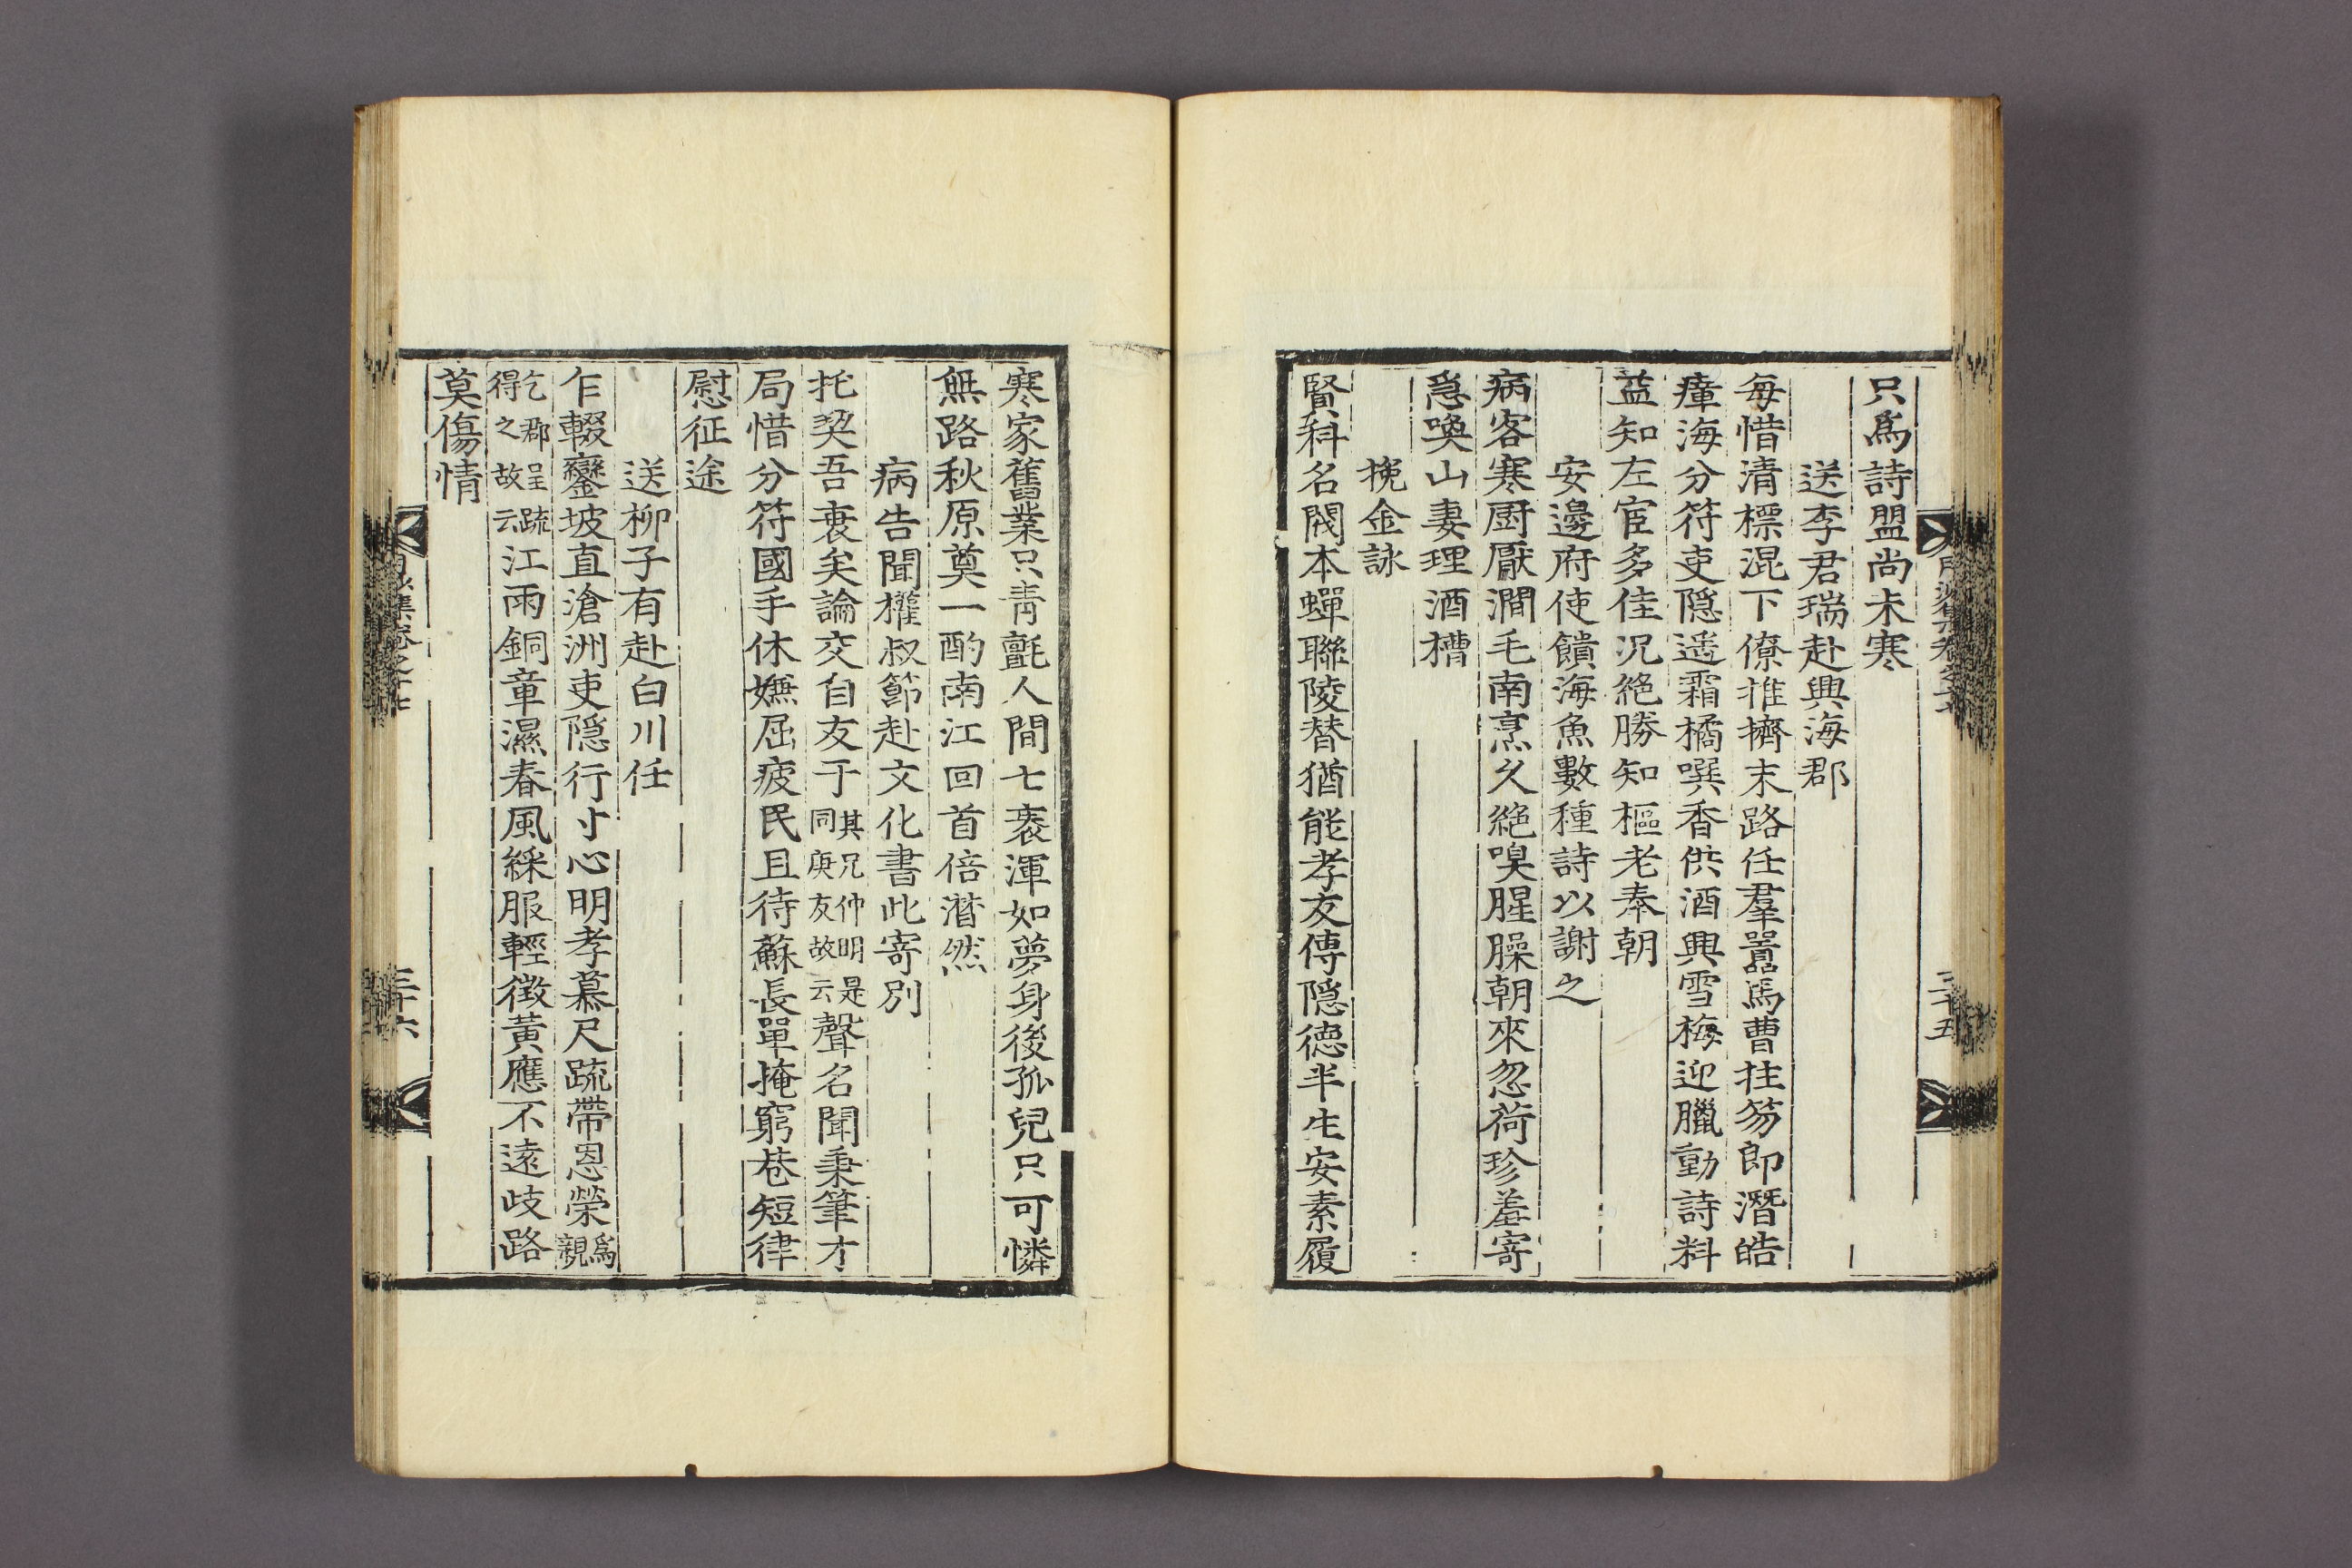 只爲詩盟尚未寒
送李君瑞赴興海郡
每惜清標混下僚推擠末路任羣囂馬曹拄笏郞潛皓
瘴海分符吏隱遥霜橘噀香供酒興雪梅迎臘動詩料
益知左宦多佳况絶勝知樞老奉朝
安邊府使饋海魚數種詩以謝之
病客寒厨厭澗毛南烹久絶嗅腥臊朝來忽荷珍羞寄
急喚山妻理酒槽
挽金詠
賢科名閥本蟬聯陵替猶能孝友傳隱德半生安素履
寒家舊業只靑氈人間七袠渾如夢身後孤兒只可憐
無路秋原奠一酌南江回首倍潸然
病告聞權叔節赴文化書此寄別
托契吾衰矣論交自友于其兄仲明是同庚友故云聲名聞秉筆才
局惜分符國手休嫌屈疲民且待蘇長單掩窮巷短律
慰征途
送柳子有赴白川任
乍輟鑾坡直滄洲吏隱行寸心明孝慕尺疏帶恩榮爲親
乞郡呈疏得之故云江雨銅章濕春風綵服輕徵黃應不遠歧路
莫傷情
集卷之十七
三十六